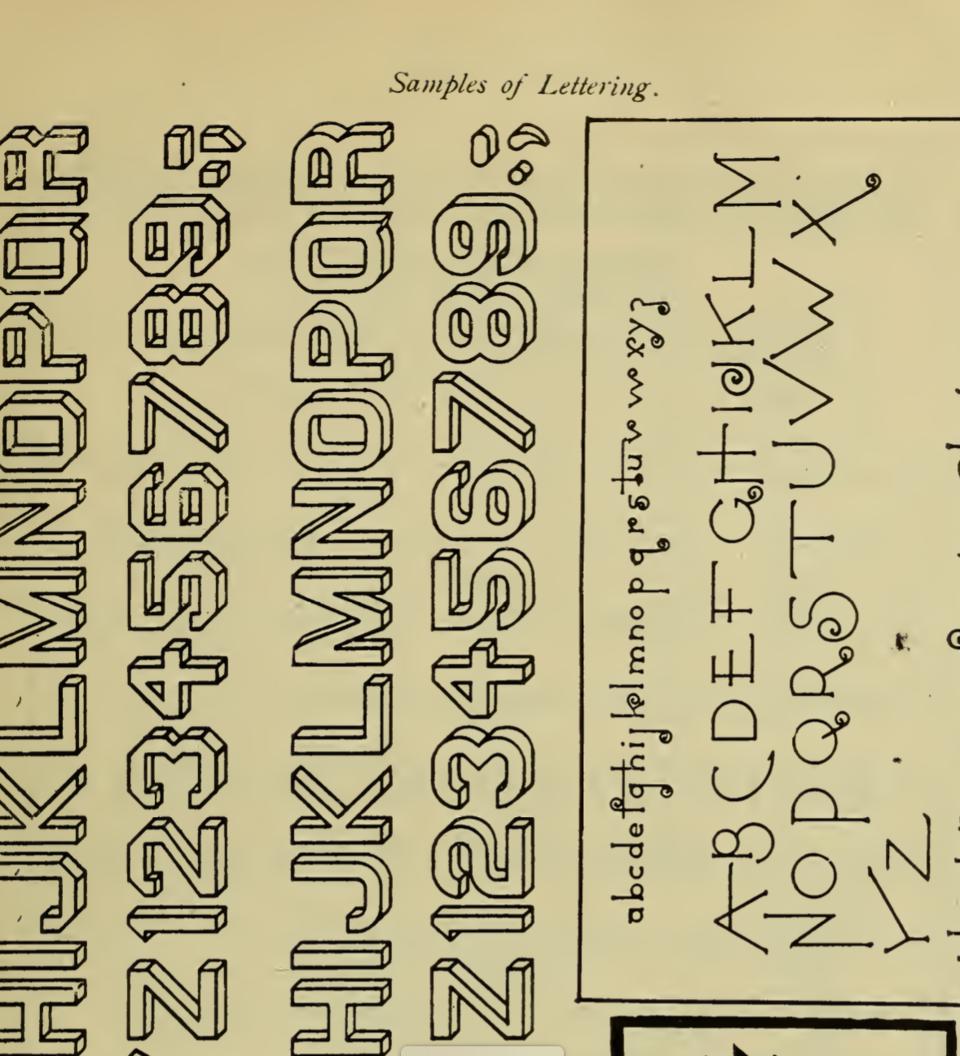 Samples of Lettering.
HIJKLMNOPQR
Z123456789.;
HIJKLMNOPQR
Z123456789.;
abcdefghijklmnopqrstuvwxyz
ABCDEFGHIJKLM
NOPQRSTUVWX
YZ